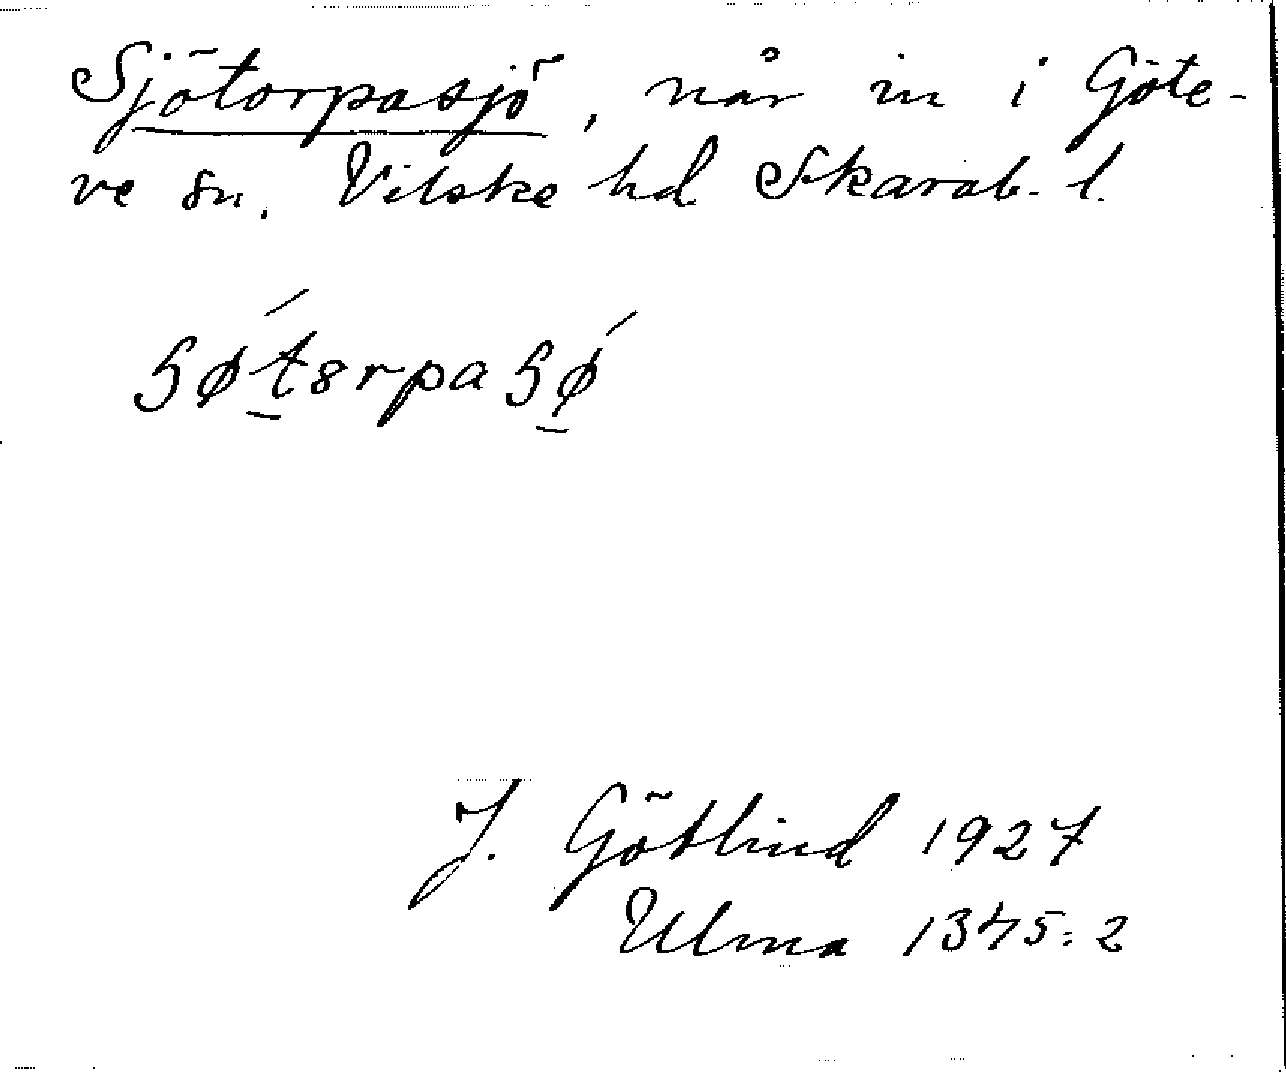 Sjötorpasjö, når in i Göte-
ve sn. Vilske hd Skarab. l.
J. Götlind 1927
Ulma 1345:2